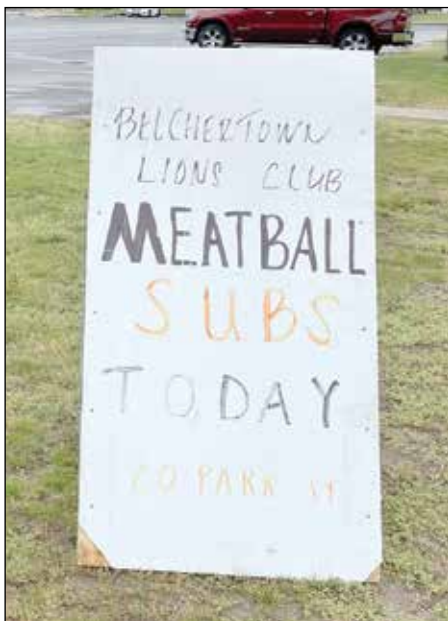 BELCHERTOWN
LIONS CLUB
MEATBALL
SUBS
TODAY
PARK ST